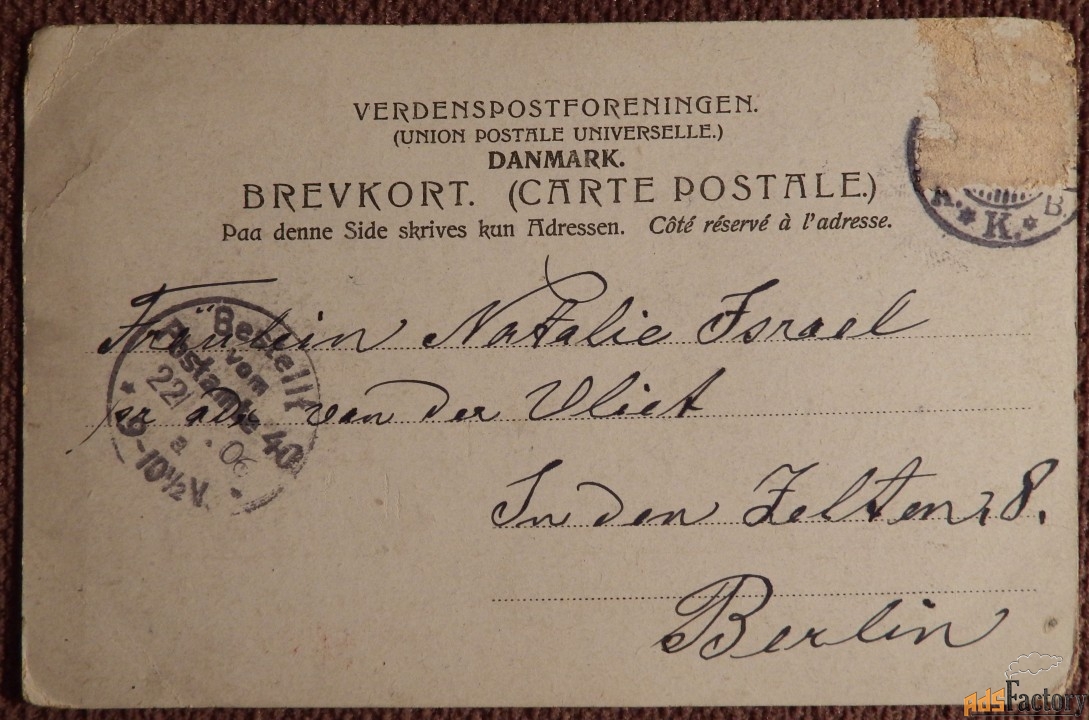 VERDENSPOSTFORENINGEN.
(UNION POSTALE UNIVERSELLE.)
DANMARK.
BREVKORT. (CARTE POSTALE.)
Paa denne Side skrives kun Adressen. Côté réservé à l'adresse.
K. K. B.
Fräulein Natalie Israel
van der Vliet
In den Zelten 18.
Berlin
Bestellt
vom
Postamte 40
22
06
9-10½V.
AdsFactory